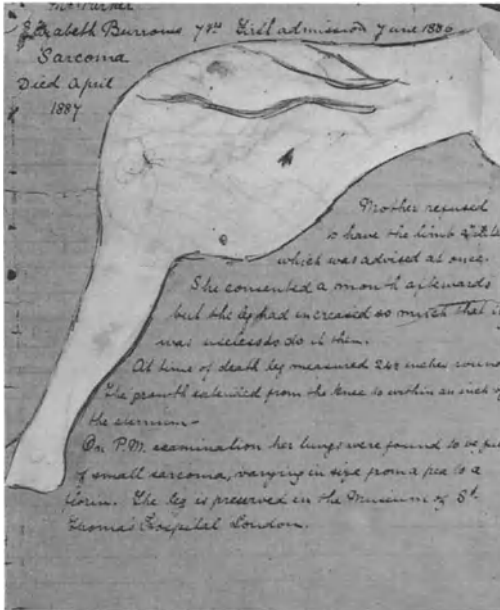 Mr Turner
Elizabeth Burrows 7 yrs First admission June 1886
Sarcoma
Died April
1887
Mother refused
to have the limb
which was advised at once.
She consented a month afterwards
but the leg had increased so much that it
was useless to do it then.
At time of death leg measured 24½ inches round
The growth extended from the knee to within an inch of
the
On P.M. examination her lungs were found to be full
of small sarcoma, varying in size from a pea to a
florin. The leg is preserved in the Museum of St
Thomas's Hospital London.